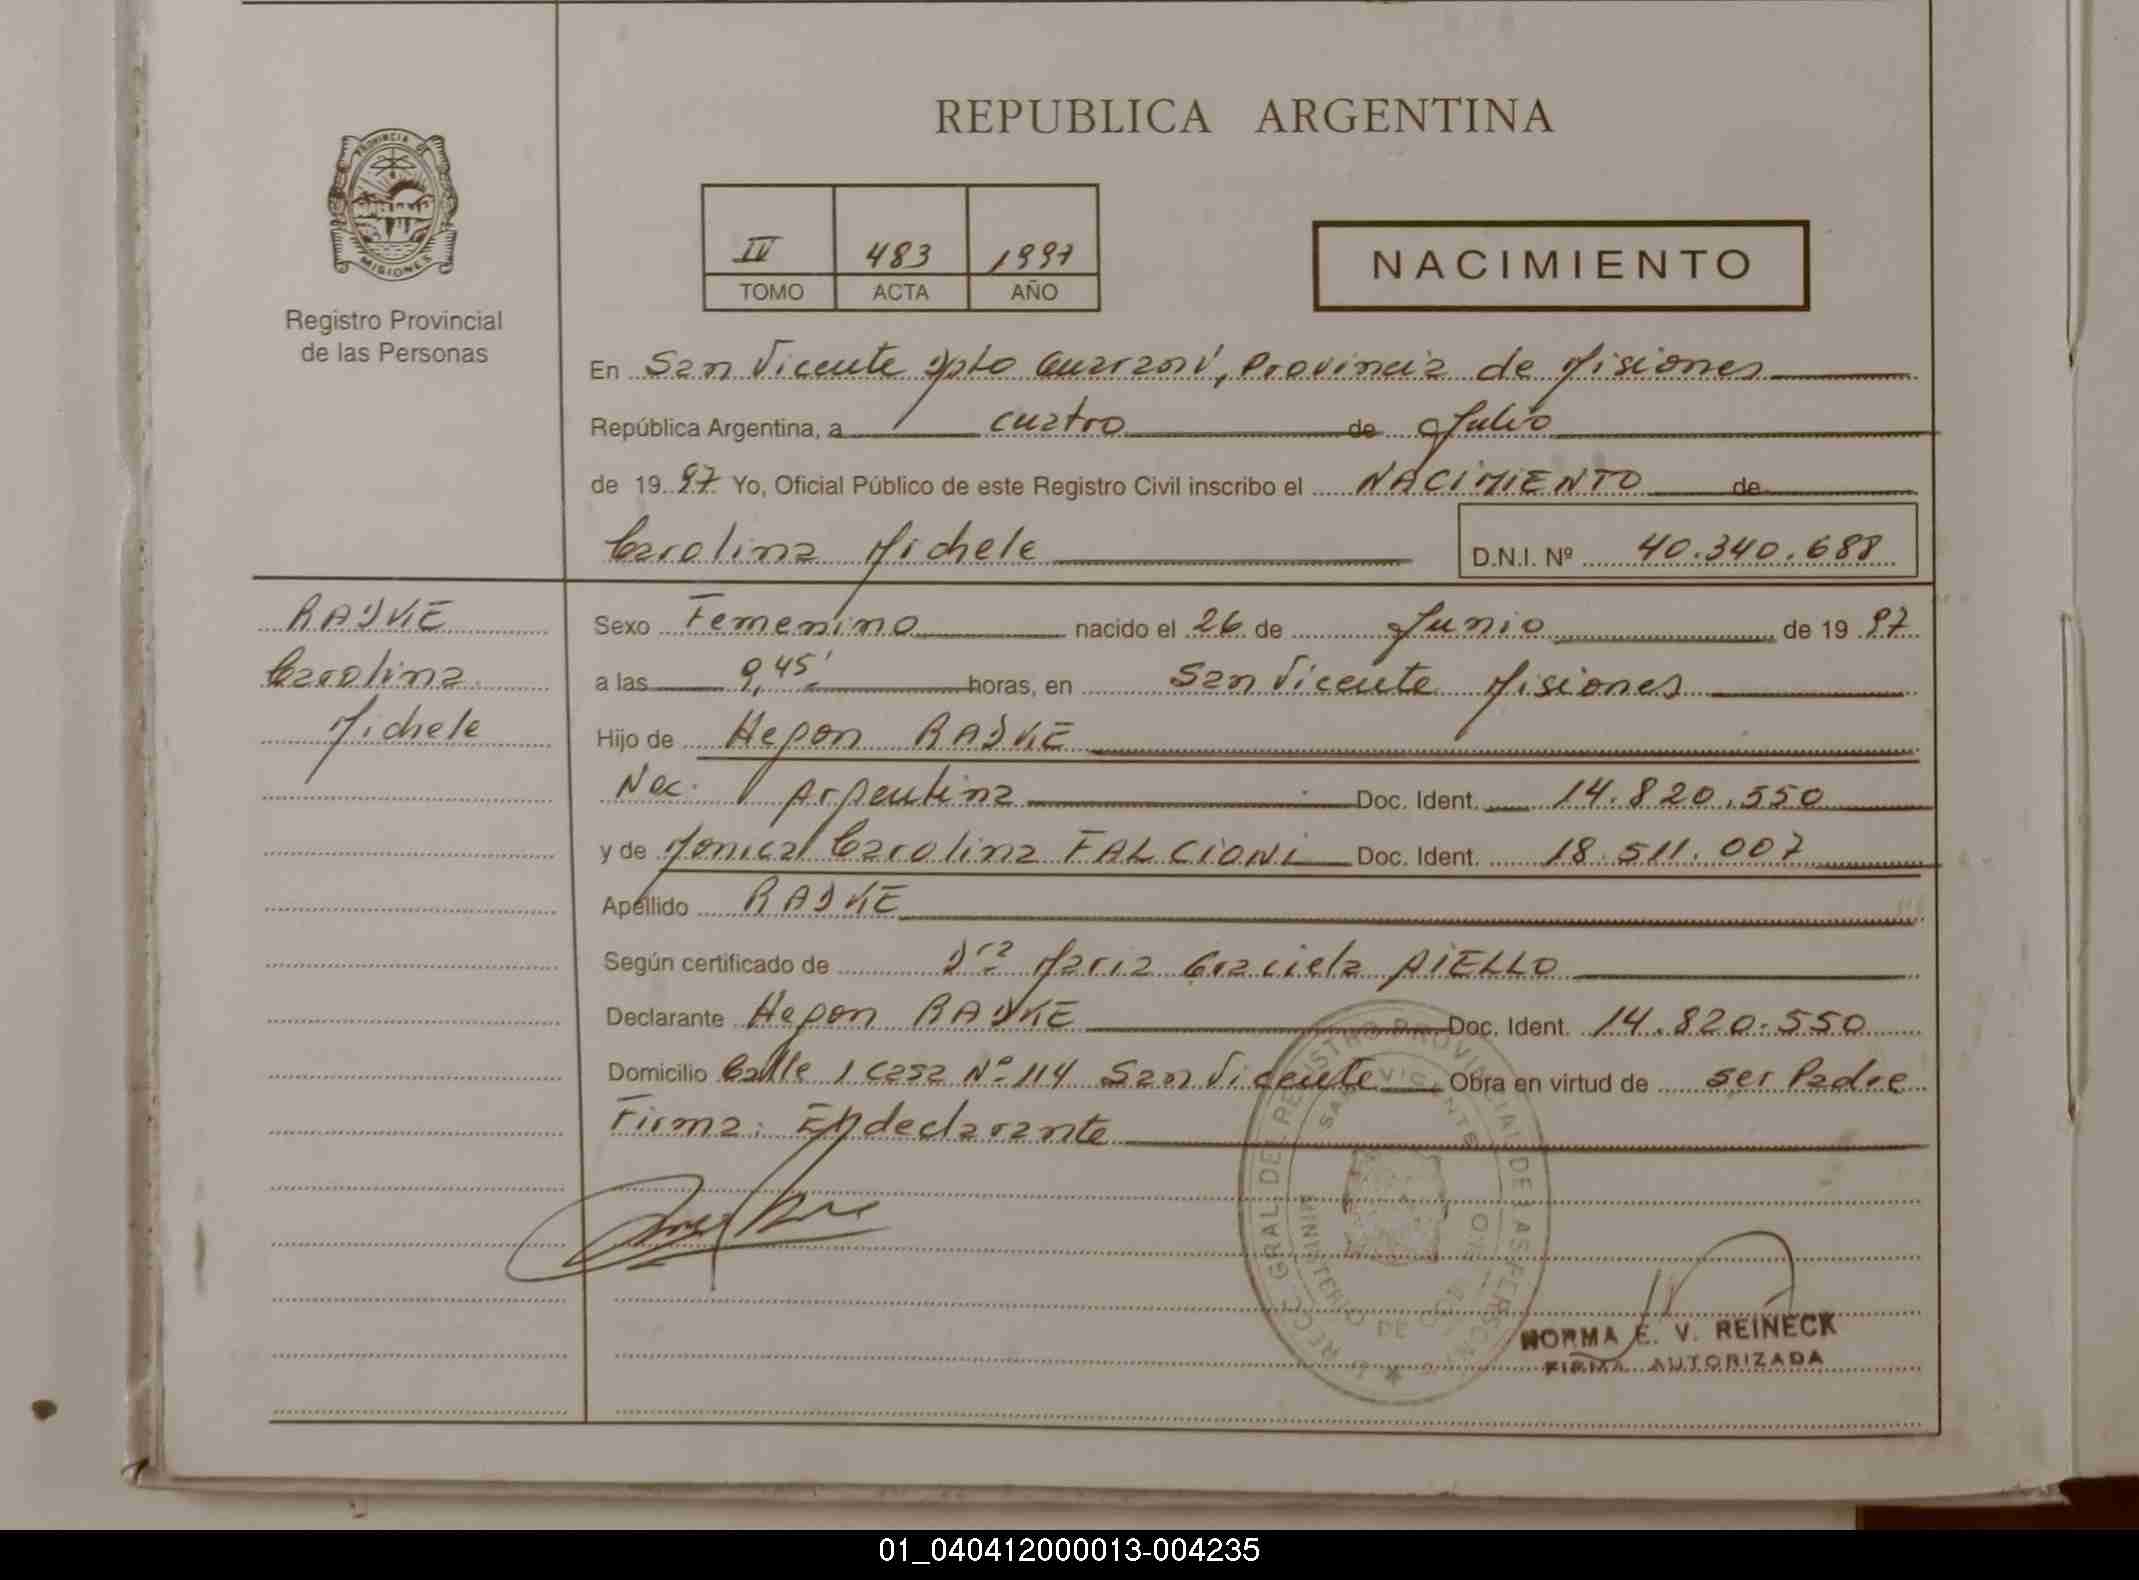 REPUBLICA ARGENTINA
PROVINCIA DE
MISIONES
Registro Provincial
de las Personas
IV 483 1997
TOMO ACTA AÑO
NACIMIENTO
En San Vicente Dpto Guaraní, Provincia de Misiones
República Argentina, a cuatro de Julio
de 1997 Yo, Oficial Público de este Registro Civil inscribo el NACIMIENTO de
Carolina Michele D.N.I. Nº 40.340.688
RADKE
Carolina
Michele
Sexo Femenino nacido el 26 de Junio de 1997
a las 9,45' horas, en San Vicente Misiones
Hijo de Hegon RADKE
Nac. Argentina Doc. Ident. 14.820.550
y de Monica Carolina FALCIONI Doc. Ident. 18.511.007
Apellido RADKE
Según certificado de Dra Maria Graciela AIELLO
Declarante Hegon RADKE Doc. Ident. 14.820.550
Domicilio Calle 1 Casa Nº 114 San Vicente Obra en virtud de ser Padre
Firma: El declarante
REGISTRO PROVINCIAL DE LAS PERSONAS
SAN VICENTE
MINISTERIO DE
NORMA E. V. REINECK
FIRMA AUTORIZADA
01_040412000013-004235